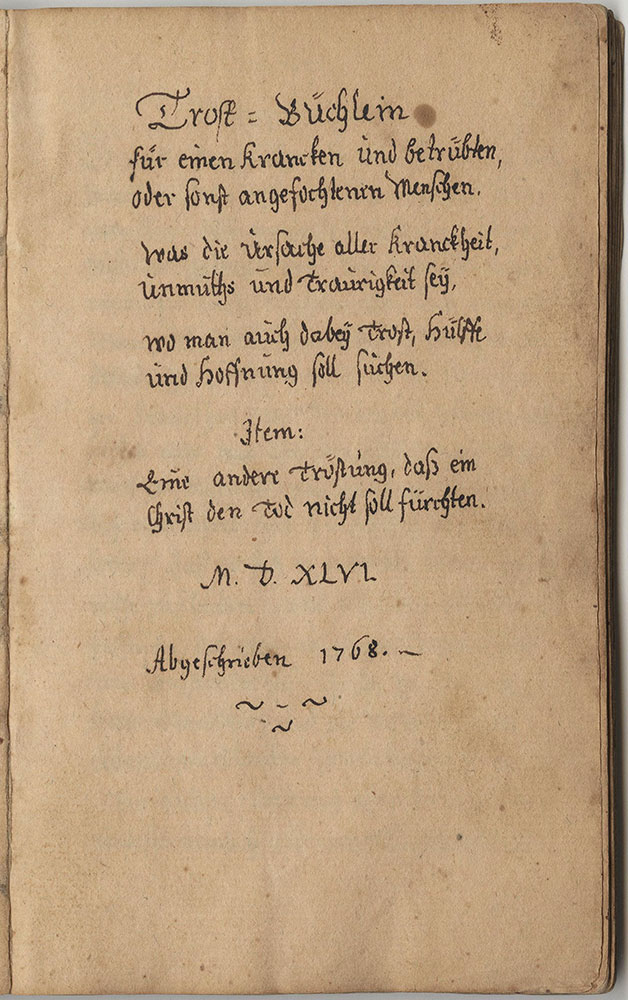 Trost = Büchlein
für einen Krancken und betrübten,
oder sonst angefochtenen Menschen.
Was die Ursache aller Kranckheit,
Unmuths und Traurigkeit seÿ,
wo man auch dabeÿ Trost, Hülffe
und Hoffnung soll suchen.
Item:
Eine andere Tröstung, daß ein
Christ den Tod nicht soll fürchten.
M. D. XLVI
Abgeschrieben 1768. ~